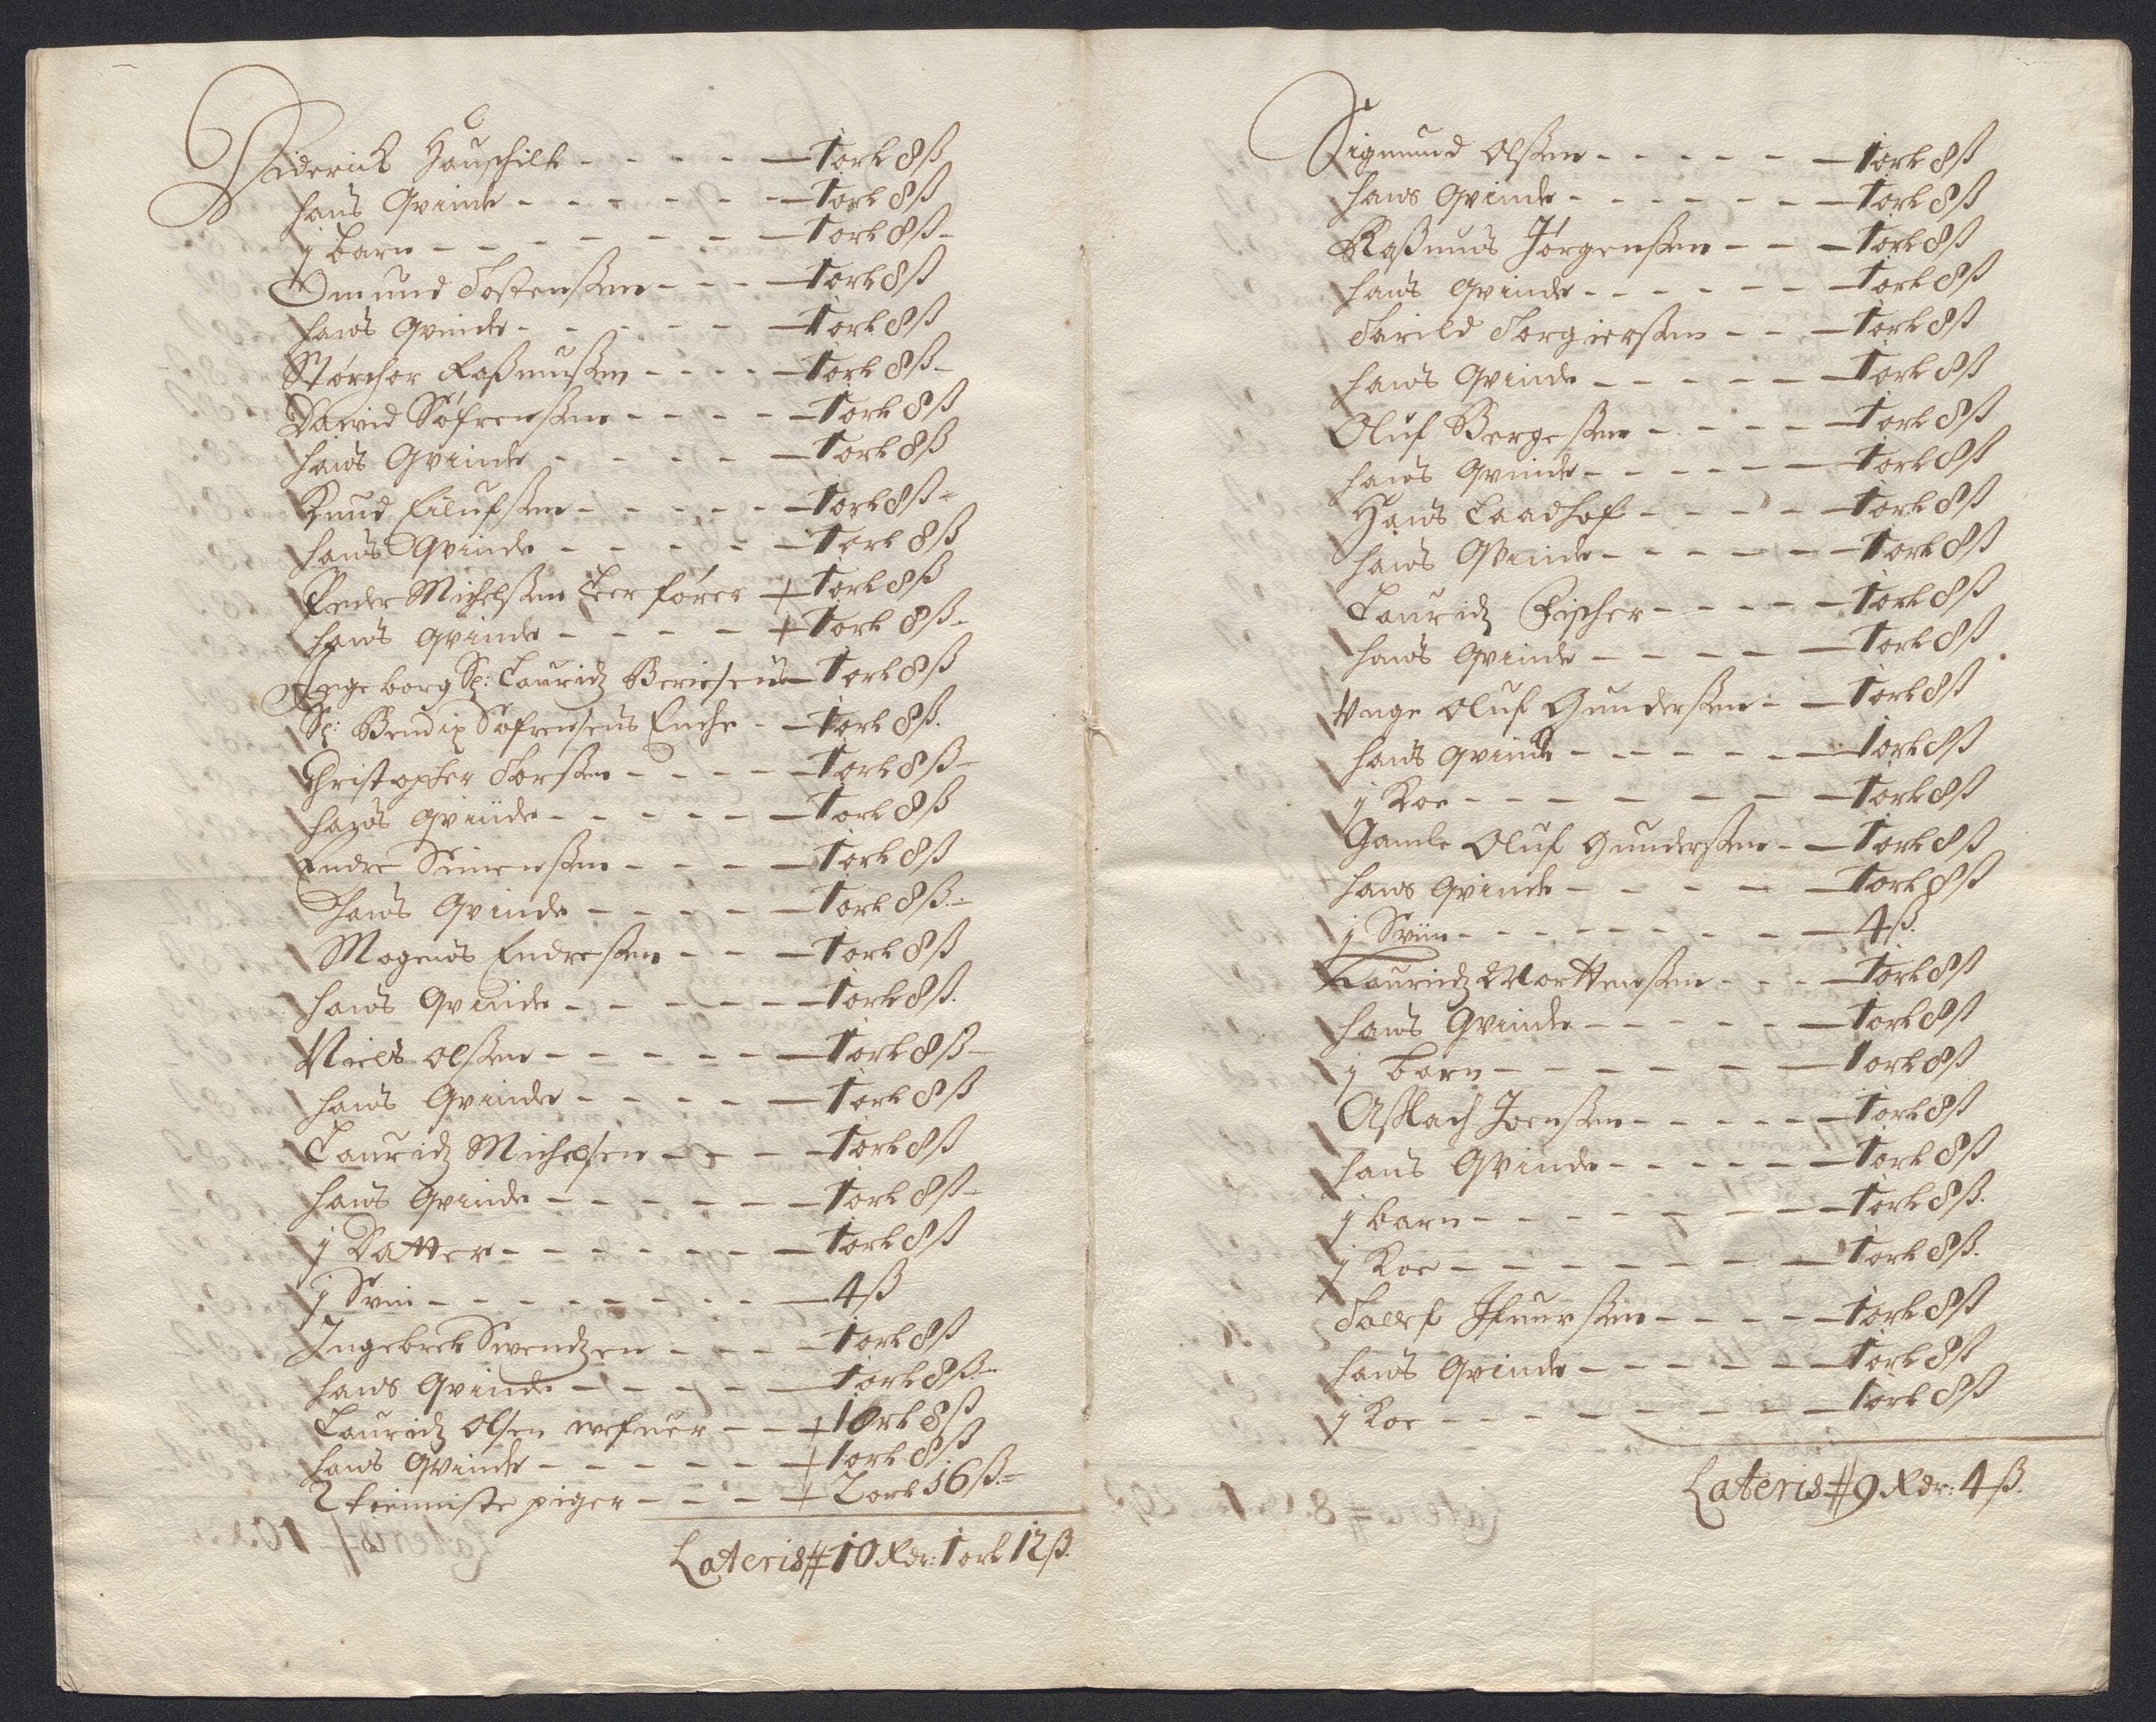 Diderick Hauschilt - - - - - 1 ort 8 ß
hans Qvinde - - - - - - 1 ort 8 ß
j barn - - - - - - - 1 ort 8 ß
Omund Tostensen - - - 1 ort 8 ß
hans Qvinde - - - - - 1 ort 8 ß
Størchor Rasmusen - - - - 1 ort 8 ß
David Søfrensen - - - - - 1 ort 8 ß
hans Qvinde - - - - - 1 ort 8 ß
Knud Eilufsen - - - - - 1 ort 8 ß
hans Qvinde - - - - - 1 ort 8 ß
Peder Michelsen + 1 ort 8 ß
hans qvinde - - - - + 1 ort 8 ß
Ingeborg Sl: Lauridz 1 ort 8 ß
Sl: Bendix Søfrensens Enche - - 1 ort 8 ß
Christopher Torsen - - - - 1 ort 8 ß
hans qvinde - - - - - 1 ort 8 ß
Endre Simensen - - - - 1 ort 8 ß
hans Qvinde - - - - - 1 ort 8 ß
Mogens Endresen - - - 1 ort 8 ß
hans Qvinde - - - - - 1 ort 8 ß
Niels Olsen - - - - - - 1 ort 8 ß
hans Qvinde - - - - - 1 ort 8 ß
Lauridz Michelsen - - - - 1 ort 8 ß
hans Qvinde - - - - - - 1 ort 8 ß
j Datter - - - - - - - 1 ort 8 ß
j Svin - - - - - - - - 4 ß
Ingebret Svendzen - - - - 1 ort 8 ß
hans Qvinde - - - - - 1 ort 8 ß
Lauridz Olsen - - + 1 ort 8 ß
hans Qvinde - - - - - - + 1 ort 8 ß
2 tienniste piger - - - + 2 ort 16 ß
Lateris # 10 Rdr: 1 ort 12 ß
Sigmund Olsen - - - - - 1 ort 8 ß
hans Qvinde - - - - - - 1 ort 8 ß
Rasmus Jørgensen - - - 1 ort 8 ß
hans qvinde - - - - - - 1 ort 8 ß
Tarild Torgiersen - - - 1 ort 8 ß
hans Qvinde - - - - - 1 ort 8 ß
Oluf Bergesen - - - - - 1 ort 8 ß
hans Qvinde - - - - - - 1 ort 8 ß
Hans - - - - 1 ort 8 ß
hans Qvinde - - - - - - 1 ort 8 ß
Lauridz Fischer - - - - - 1 ort 8 ß
hans Qvinde - - - - - 1 ort 8 ß
Unge Oluf Gundersen - - 1 ort 8 ß
hans qvinde - - - - - - 1 ort 8 ß
j Koe - - - - - - - 1 ort 8 ß
Gamle Oluf Gundersen - - 1 ort 8 ß
hans Qvinde - - - - - 1 ort 8 ß
j Sviin - - - - - - - - 4 ß
Lauridz Morttensen - - - 1 ort 8 ß
hans Qvinde - - - - - 1 ort 8 ß
j barn - - - - - - 1 ort 8 ß
Asslach Joensen - - - - - 1 ort 8 ß
hans Qvinde - - - - - - 1 ort 8 ß
j barn - - - - - - - 1 ort 8 ß
j Koe - - - - - - - 1 ort 8 ß
Ifuersen - - - - 1 ort 8 ß
hans Qvinde - - - - - - 1 ort 8 ß
j Koe - - - - - - - 1 ort 8 ß
Lateris # 9 Rdr: 4 ß